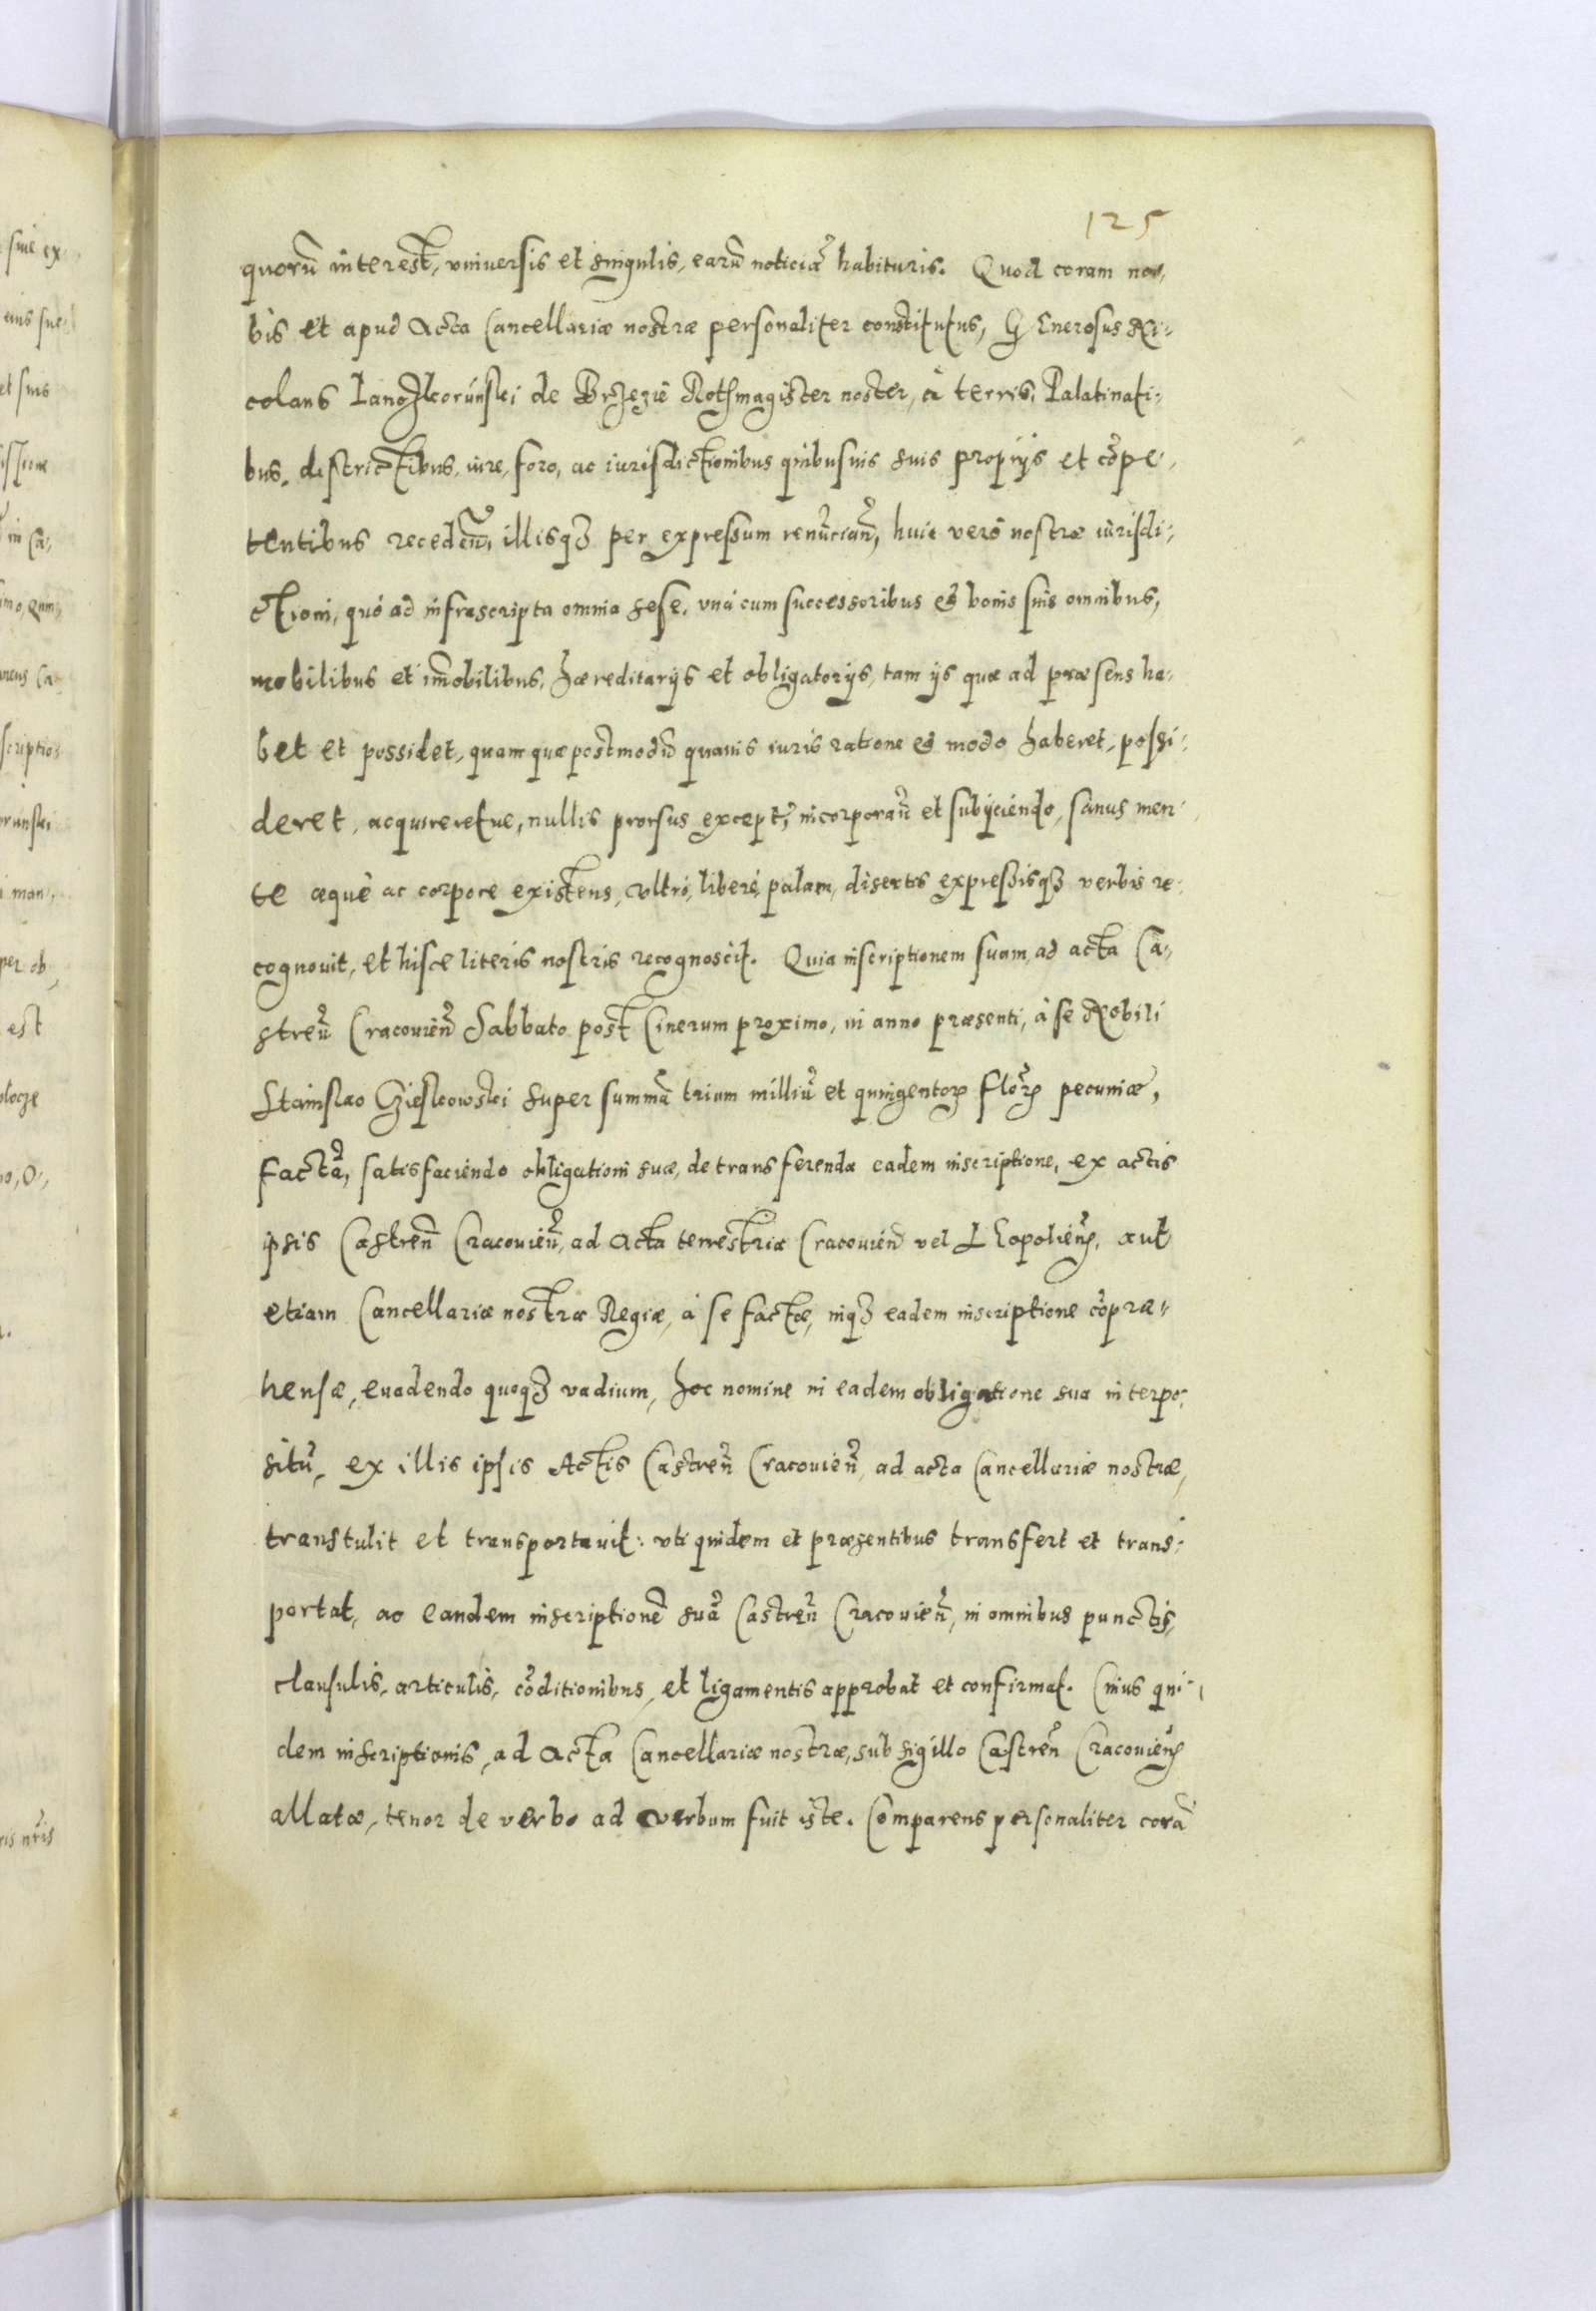 125
quorũ interest, vniuersis et singulis, earũ noticiã habituris. Quod coram no-
bis et apud Acta Cancellariæ nostræ personaliter constitutus, Generosus Ni-
colaus Lanczkorúnski de Brzezie Rothmagister noster, à terris, Palatinati-
bus, districtibus, iure, foro, ac iurisdictionibus quibusuis suis propijs et cõpe-
tentibus recedeñ, illisq3 per expressum renũciañ, huic verò nostræ iurisdi-
ctioni, quò ad infrascripta omnia sese, vnà cum successoribus & bonis suis omnibus,
mobilibus et im̃obilibus, hæreditarijs et obligatorijs, tam ijs quæ ad præsens ha-
bet et possidet, quam quæ postmodũ quauis iuris ratione & modo haberet, possi-
deret, acquireretue, nullis prorsus except̃, incorporañ et subijciendo, sanus men-
te æquè ac corpore existens, vltrò, liberè, palam, disertis expressisq3 verbis re-
cognouit, et hisce literis nostris recognoscit. Quia inscriptionem suam, ad acta Ca-
streñ Cracouieñ Sabbato post Cinerum proximo, in anno præsenti, à se Nobili
Stanislao Czieskowski super summã trium milliũ et quingentorꝫ florꝫ pecuniæ,
factã, satisfaciendo obligationi suæ, de transferenda eadem inscriptione, ex actis
ipsis Castreñ Cracouieñ, ad Acta terrestria Cracouieñ vel Leopolieñ, aut
etiam Cancellariæ nostræ Regiæ, à se factæ, inq3 eadem inscriptione cõpræ-
hensæ, euadendo quoq3 vadium, hoc nomine in eadem obligatione sua interpo-
sitũ, ex illis ipsis Actis Castreñ Cracouieñ, ad acta Cancellariæ nostræ,
transtulit et transportauit: vti quidem et præsentibus transfert et trans-
portat, ac eandem inscriptionẽ suã Castreñ Cracouieñ, in omnibus punctis,
clausulis, articulis, cõditionibus, et ligamentis approbat et confirmat. Cuius qui-
dem inscriptionis, ad Acta Cancellariæ nostræ, sub sigillo Castreñ Cracouieñ
allatæ, tenor de verbo ad verbum fuit iste. Comparens personaliter corã